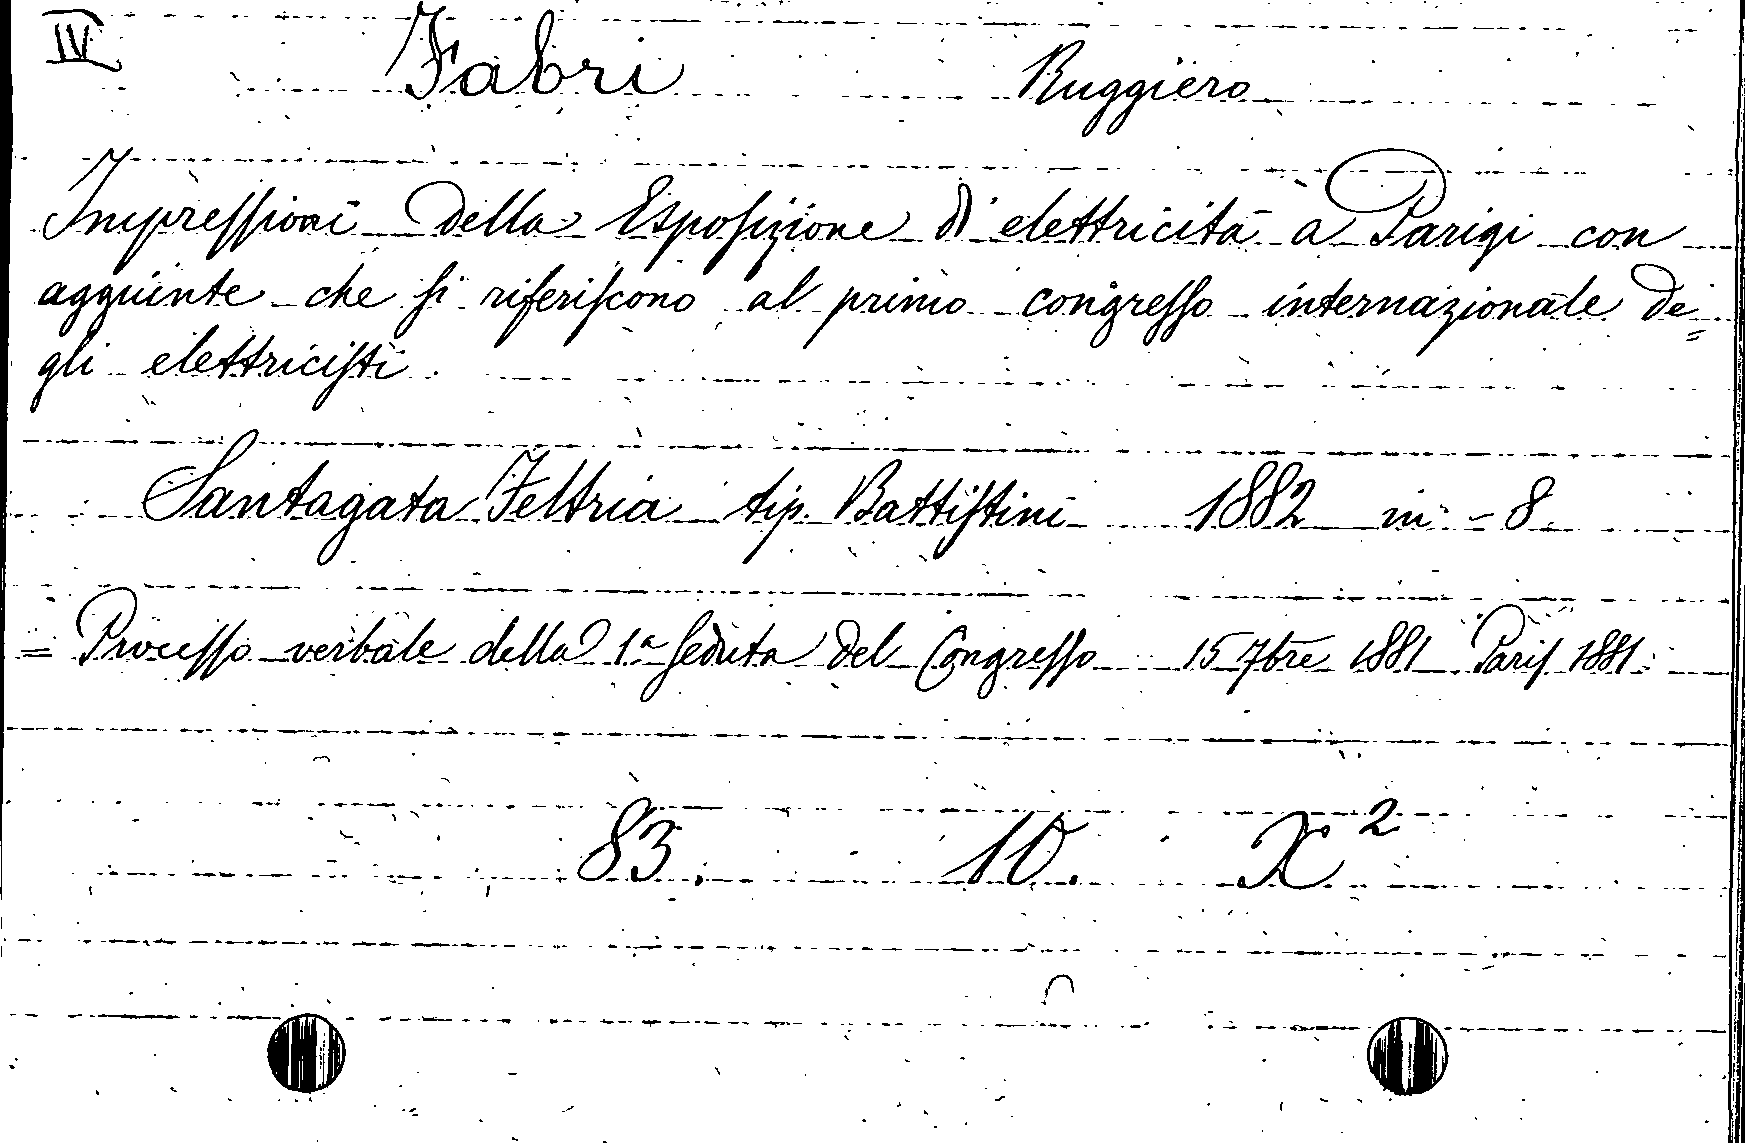 IV Fabri Ruggiero
Impressioni della Esposizione di elettricità a Parigi con
aggiunte che si riferiscono al primo congresso internazionale de=
gli elettricisti.
Santagata Feltria tip. Battistini 1882 in - 8.
= Processo verbale della 1a Seduta del Congresso 15 7bre 1881 Paris 1881.
83. 10. X 2